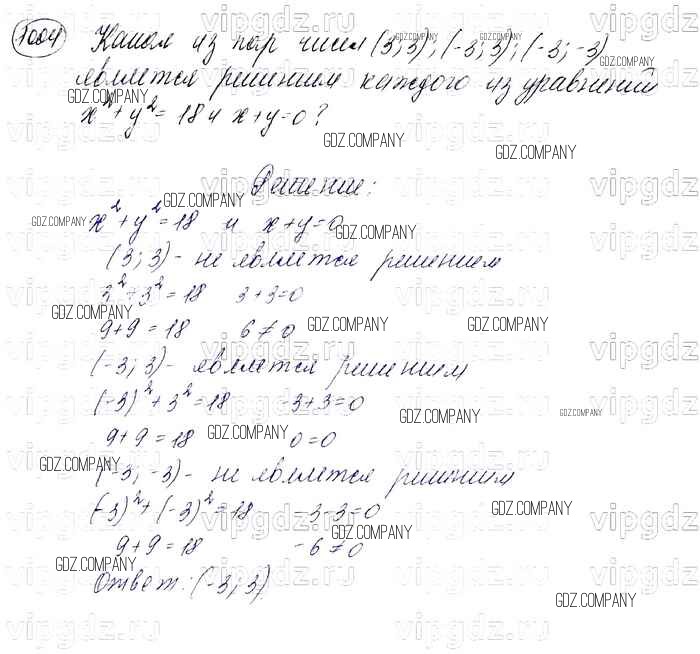 1004 Какая из пар чисел (3; 3); (-3; 3); (-3; -3)
является решением каждого из уравнений
x² + y² = 18 и x + y = 0?
Решение:
x² + y² = 18 и x + y = 0
(3; 3) - не является решением
3² + 3² = 18 3 + 3 = 0
9 + 9 = 18 6 ≠ 0
(-3; 3) - является решением
(-3)² + 3² = 18 -3 + 3 = 0
9 + 9 = 18 0 = 0
(-3; -3) - не является решением
(-3)² + (-3)² = 18 -3 - 3 = 0
9 + 9 = 18 -6 ≠ 0
Ответ: (-3; 3)
GDZ.COMPANY
vipgdz.ru